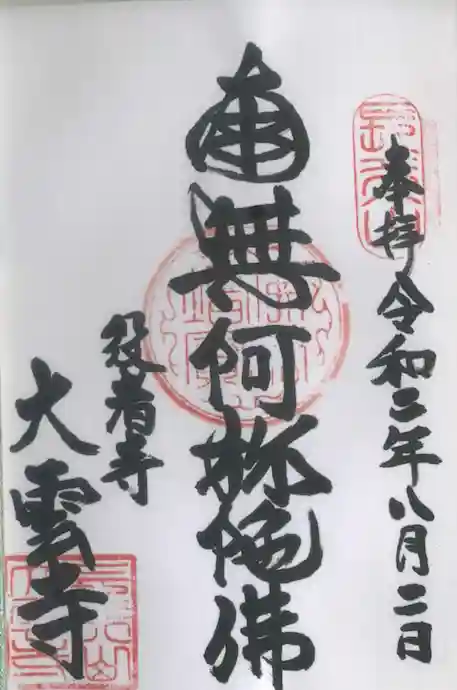 奉拝 令和二年八月二日
南無阿弥陀佛
役者寺
大雲寺